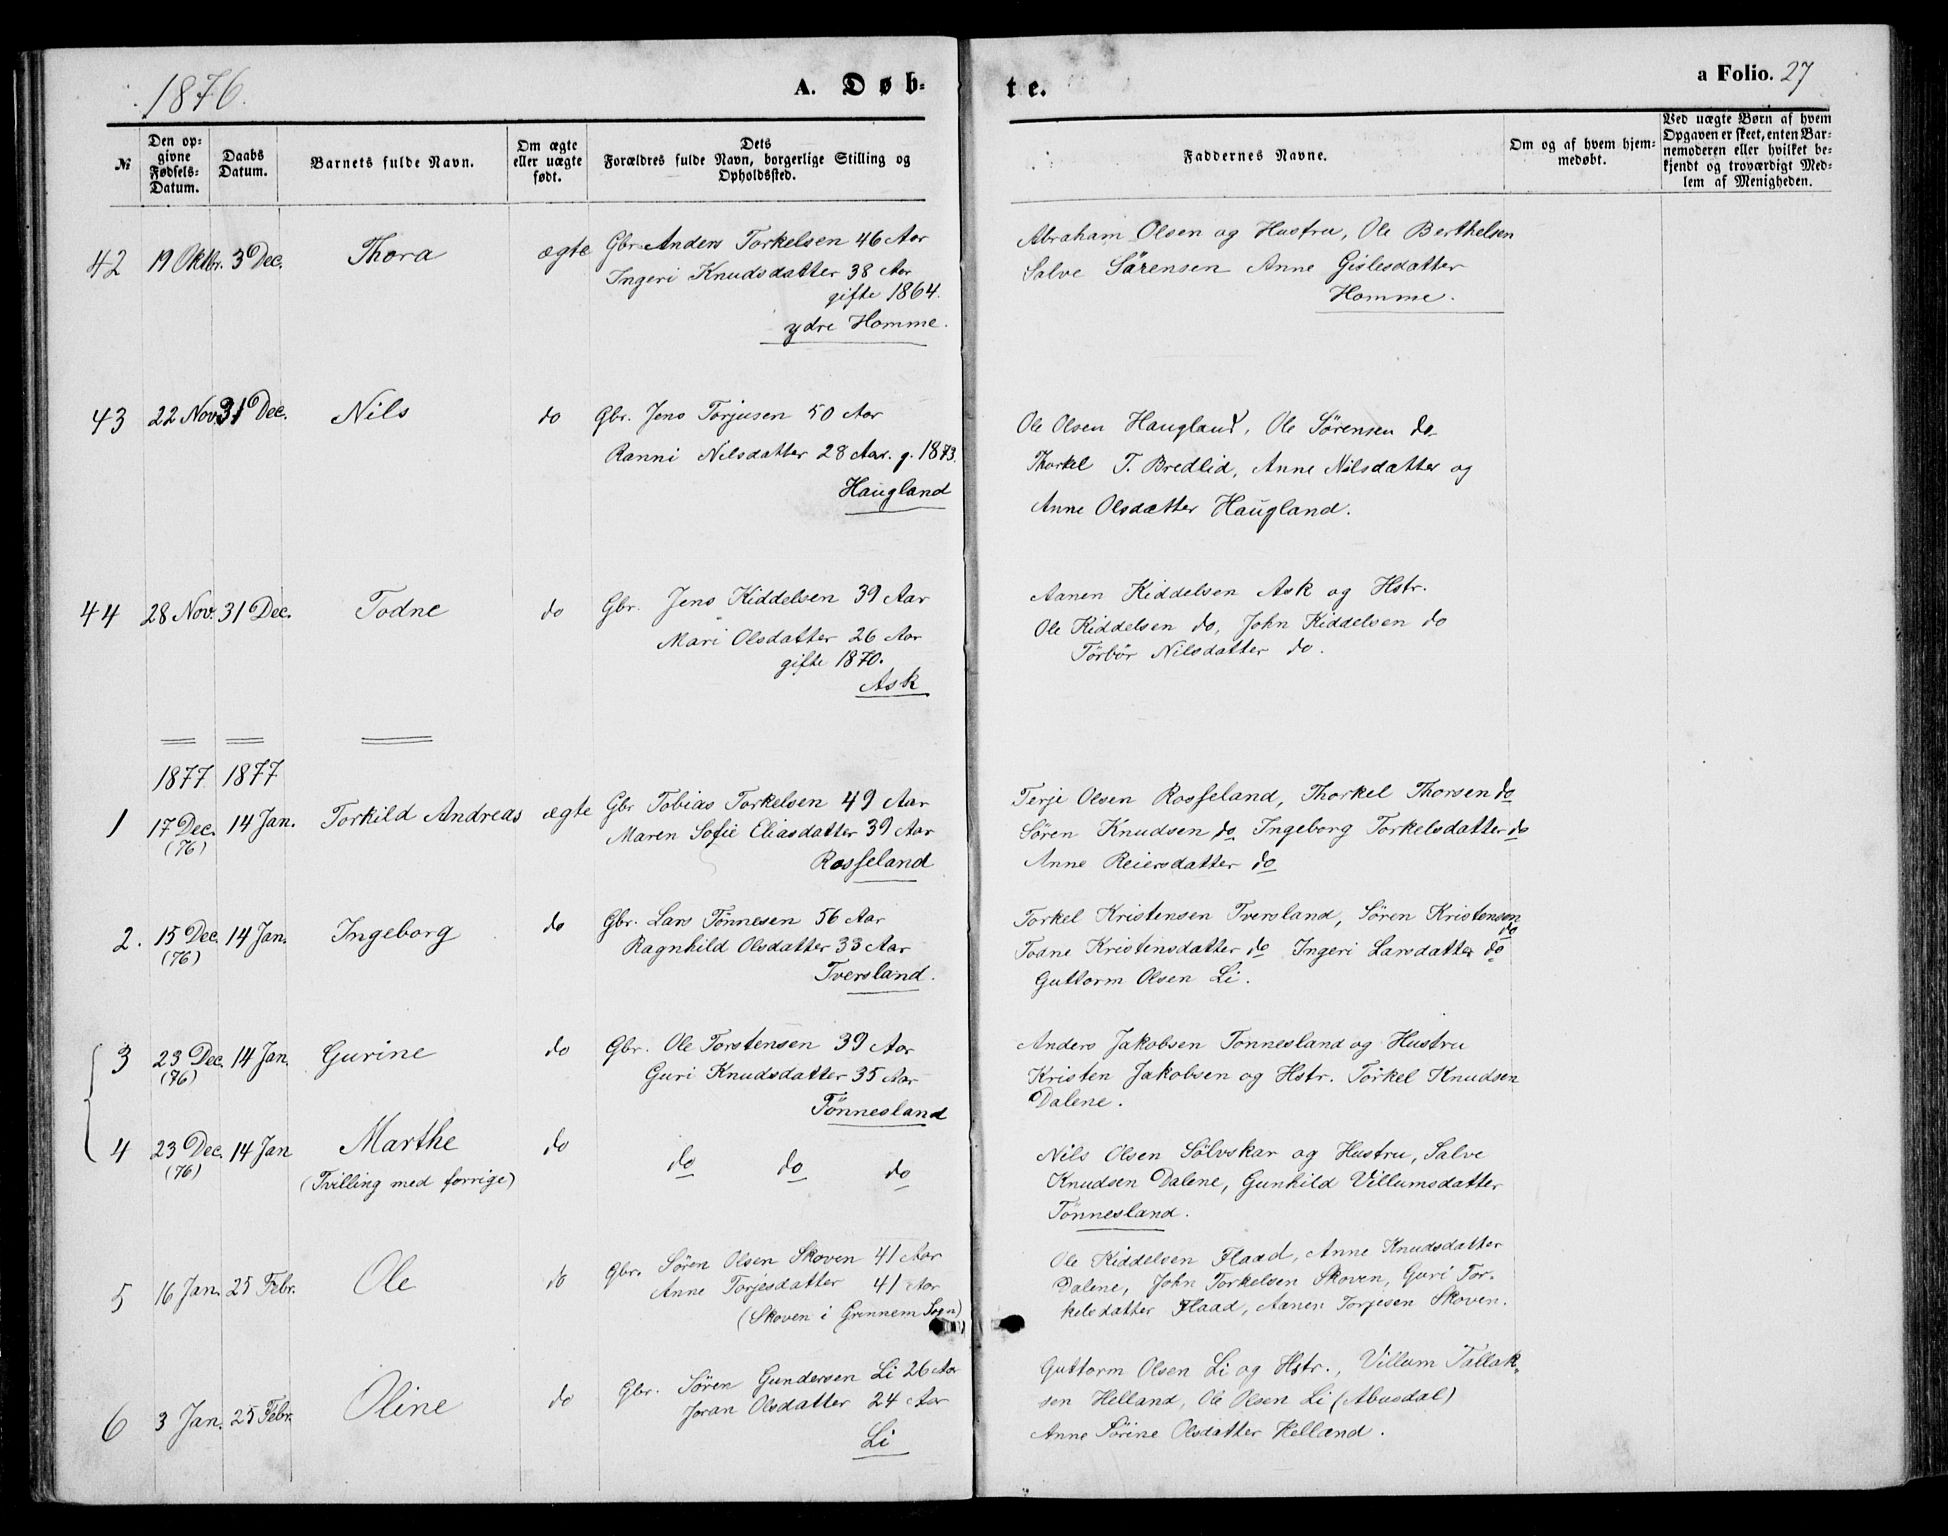 1876.
A. Døb-
№
Den op-
givne
Fødsels-
Datum.
Daabs
Datum.
Barnets fulde Navn.
Om ægte
eller uægte
født.
Dets
Forældres fulde Navn, borgerlige Stilling og
Opholdssted.
42 19 Oktbr. 3 Dec. Thora ægte Gbr. Anders Torkelsen 46 Aar
Ingeri Knudsdatter 38 Aar
gifte 1864.
ydre Homme.
43 22 Nov. 31 Dec. Nils do Gbr. Jens Torjusen 50 Aar
Ranni Nilsdatter 28 Aar. g. 1873.
Haugland
44 28 Nov. 31 Dec. Todne do Gbr. Jens Kiddelsen 39 Aar
Mari Olsdatter 26 Aar
gifte 1870.
Ask
1877 1877
1 17 Dec. 14 Jan. Torkild Andreas ægte Gbr Tobias Torkelsen 49 Aar
(76) Maren Sofie Eliasdatter 39 Aar
Rosseland
2. 15 Dec. 14 Jan. Ingeborg do Gbr. Lars Tönnesen 56 Aar
(76) Ragnhild Olsdatter 33 Aar
Tversland.
3 23 Dec. 14 Jan. Gurine do Gbr. Ole Torstensen 39 Aar
(76) Guri Knudsdatter 35 Aar
Tönnesland
4 23 Dec. 14 Jan Marthe do do do do
(76) (Tvilling med forrige)
5 16 Jan. 25 Febr. Ole do Gbr. Søren Olsen Skoven 41 Aar
Anne Torjesdatter 41 Aar
(Skoven i Grinnem Sogn)
6 3 Jan. 25 Febr. Oline do Gbr. Søren Gundersen Li 26 Aar
Joran Olsdatter 24 Aar
Li
te.
a Folio. 27
Faddernes Navne.
Om og af hvem hjem-
medøbt.
Ved uægte Børn af hvem
Opgaven er skeet, enten Bar-
nemoderen eller hvilket be-
kjendt og troværdigt Med-
lem af Menigheden.
Abraham Olsen og Hustru, Ole Berthelsen
Salve Sörensen Anne Gislesdatter
Homme.
Ole Olsen Haugland, Ole Sørensen do
Thorkel T. Bredlid, Anne Nilsdatter og
Anne Olsdatter Haugland.
Aanen Kiddelsen Ask og Hstr.
Ole Kiddelsen do, John Kiddelsen do
Törbör Nilsdatter do.
Terje Olsen Rosseland, Thorkel Thorsen do
Søren Knudsen do Ingeborg Torkelsdatter do
Anne Reiersdatter do
Torkel Kristensen Tversland, Søren Kristensen
do
Todne Kristensdatter do Ingeri Larsdatter do
Guttorm Olsen Li.
Anders Jakobsen Tonnesland og Hustru
Kristen Jakobsen og Hstr. Torkel Knudsen
Dalene.
Nils Olsen Sölvskar og Hustru, Salve
Knudsen Dalene, Gunhild Villumsdatter
Tonnesland.
Ole Kiddelsen Flaad, Anne Knudsdatter
Dalene, John Torkelsen Skoven, Guri Tor-
kelsdatter Flaad, Aanen Torjesen Skoven.
Guttorm Olsen Li og Hstr., Villum Tallak-
sen Helland, Ole Olsen Li (Abusdal)
Anne Sörine Olsdatter Helland.